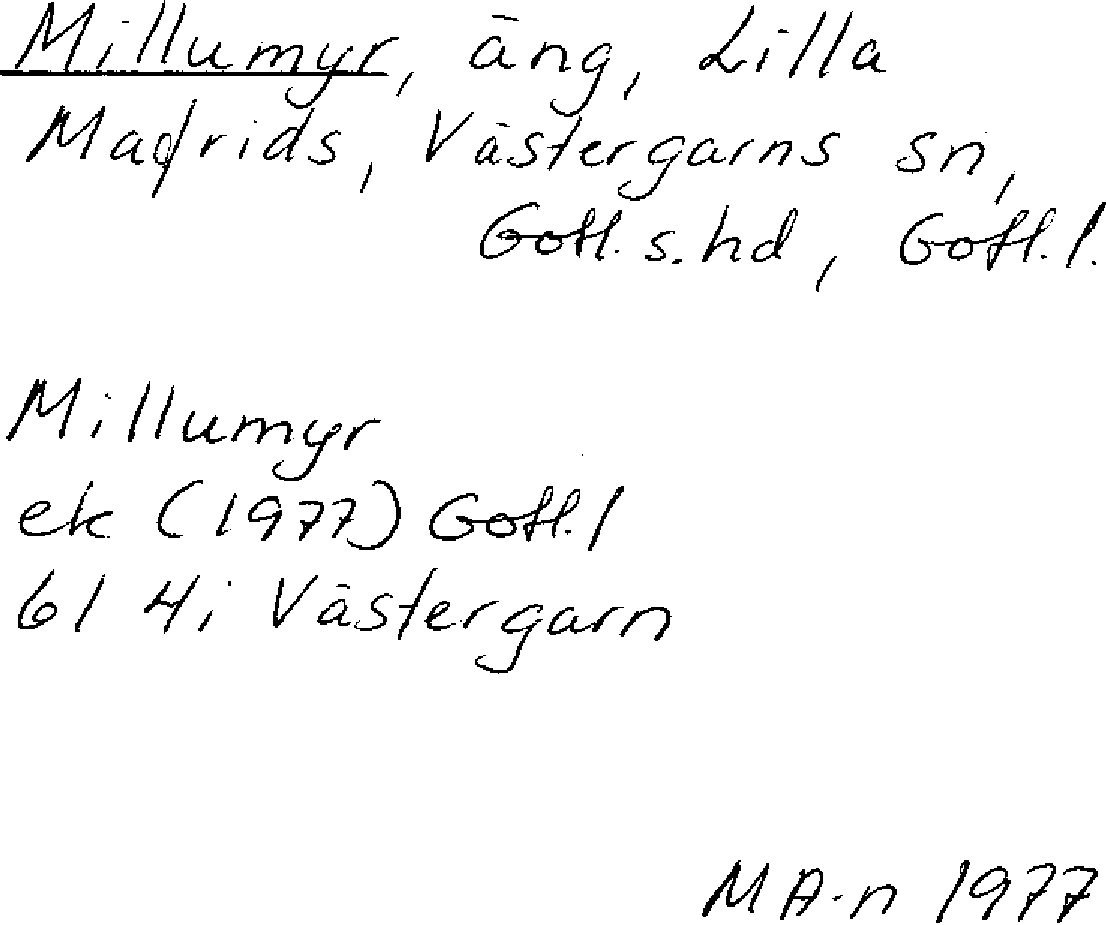 Millumyr, äng, Lilla
Mafrids, Västergarns sn,
Gotl. s. hd, Gotl. l.
Millumyr
ek (1977) Gotl. l
6I 4i Västergarn
MA-n 1977